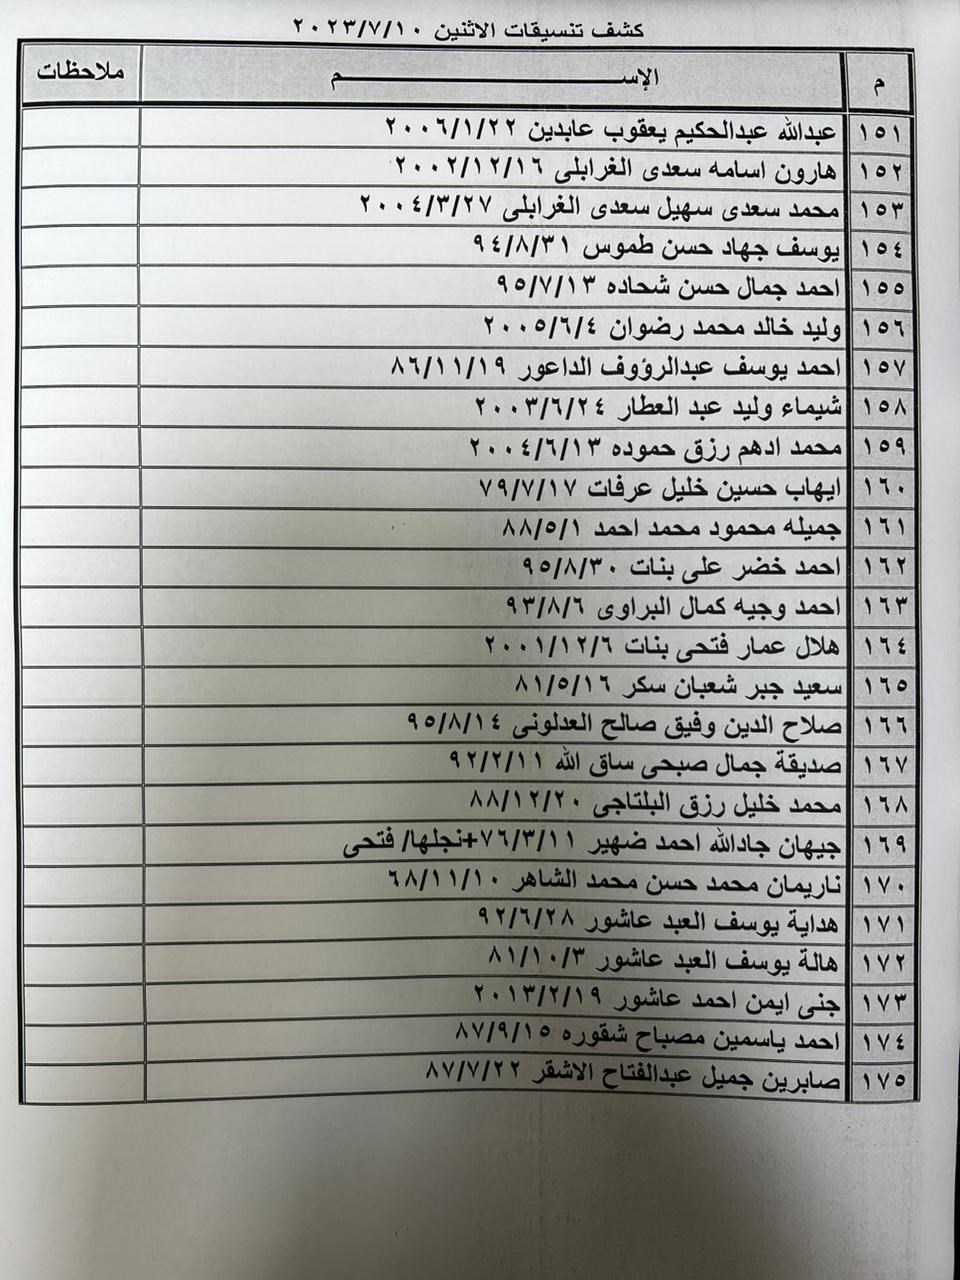 كشف تنسيقات الاثنين ٢٠٢٣/٧/١٠
م الإســـــــــــــــــم ملاحظات
١٥١ عبدالله عبدالحكيم يعقوب عابدين ٢٠٠٦/١/٢٢
١٥٢ هارون اسامه سعدى الغرابلى ٢٠٠٢/١٢/١٦
١٥٣ محمد سعدى سهيل سعدى الغرابلى ٢٠٠٤/٣/٢٧
١٥٤ يوسف جهاد حسن طموس ٩٤/٨/٣١
١٥٥ احمد جمال حسن شحاده ٩٥/٧/١٣
١٥٦ وليد خالد محمد رضوان ٢٠٠٥/٦/٤
١٥٧ احمد يوسف عبدالرؤوف الداعور ٨٦/١١/١٩
١٥٨ شيماء وليد عبد العطار ٢٠٠٣/٦/٢٤
١٥٩ محمد ادهم رزق حموده ٢٠٠٤/٦/١٣
١٦٠ ايهاب حسين خليل عرفات ٧٩/٧/١٧
١٦١ جميله محمود محمد احمد ٨٨/٥/١
١٦٢ احمد خضر على بنات ٩٥/٨/٣٠
١٦٣ احمد وجيه كمال البراوى ٩٣/٨/٦
١٦٤ هلال عمار فتحى بنات ٢٠٠١/١٢/٦
١٦٥ سعيد جبر شعبان سكر ٨١/٥/١٦
١٦٦ صلاح الدين وفيق صالح العدلونى ٩٥/٨/١٤
١٦٧ صديقة جمال صبحى ساق الله ٩٢/٢/١١
١٦٨ محمد خليل رزق البلتاجى ٨٨/١٢/٢٠
١٦٩ جيهان جادالله احمد ضهير ٧٦/٣/١١+نجلها/ فتحى
١٧٠ ناريمان محمد حسن محمد الشاهر ٦٨/١١/١٠
١٧١ هداية يوسف العبد عاشور ٩٢/٦/٢٨
١٧٢ هالة يوسف العبد عاشور ٨١/١٠/٣
١٧٣ جنى ايمن احمد عاشور ٢٠١٣/٢/١٩
١٧٤ احمد ياسمين مصباح شقوره ٨٧/٩/١٥
١٧٥ صابرين جميل عبدالفتاح الاشقر ٨٧/٧/٢٢